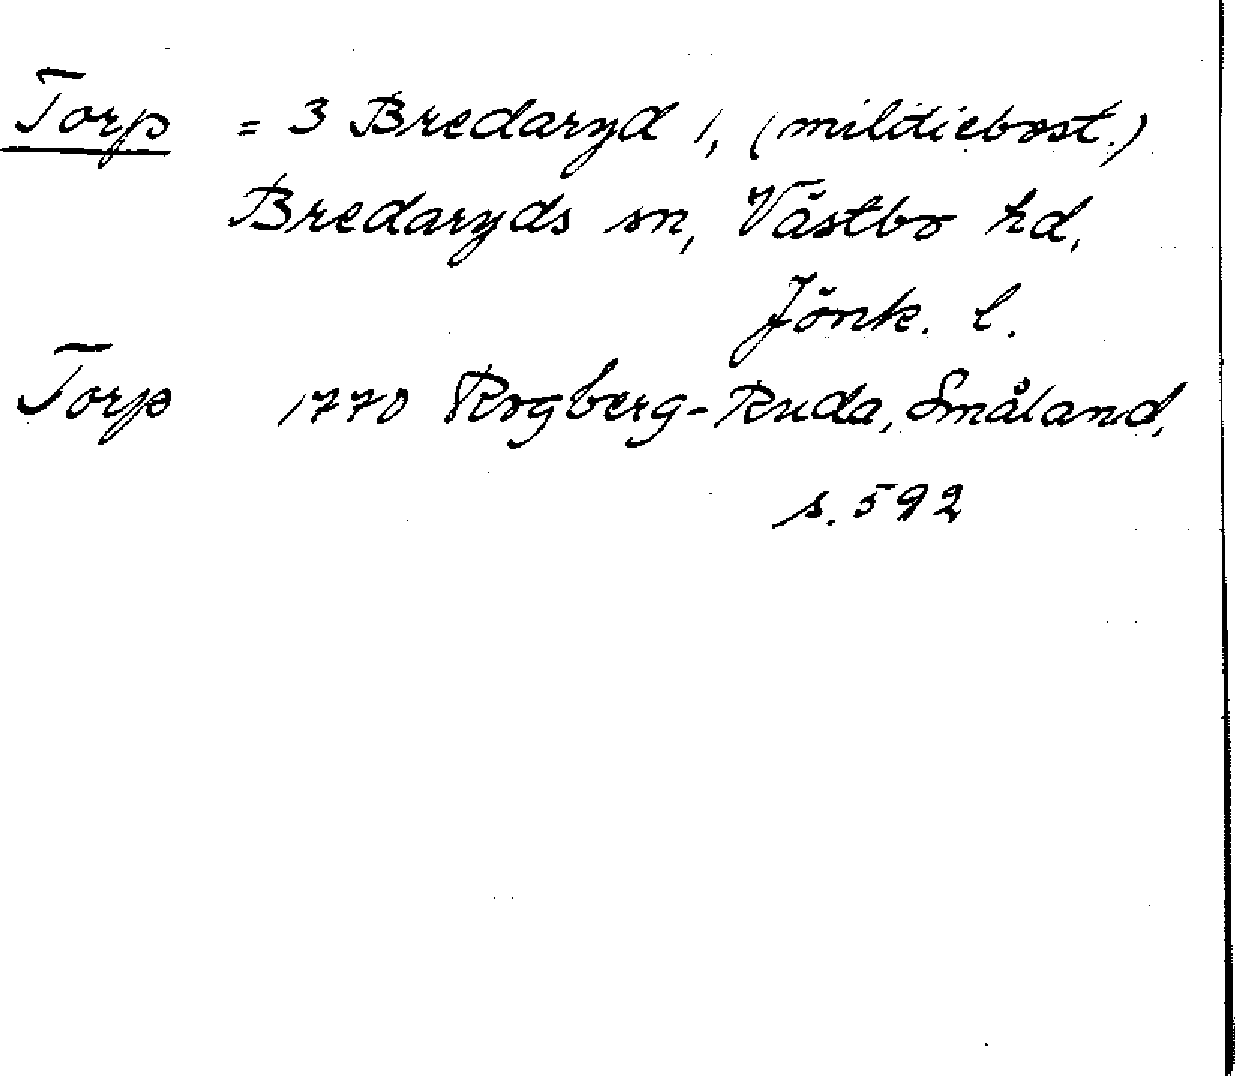 Torp = 3 Bredaryd 1, (militiebost.)
Bredaryds sn, Västbo hd,
Jönk. l.
Torp 1770 Rogberg-Ruda, Småland,
s. 592